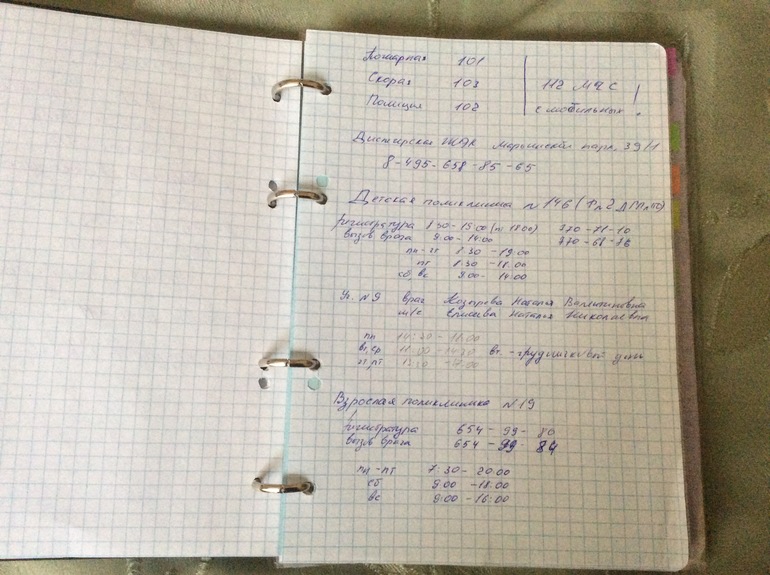 Пожарная 101
Скорая 103
Полиция 102
112 МЧС
с мобильных.
Диспетчерская ЖЭК Марьинский парк, 39/1
8-495-658-85-65
Детская поликлиника №146
Регистратура 8:30-15:00 (пт 18:00) 770-71-10
вызов врача 9:00-14:00 770-68-76
пн-чт 8:30-19:00
пт 8:30-18:00
сб, вс 9:00-14:00
Уч. №9 врач Наталья Валентиновна
м/с Наталья Николаевна
пн
вт, ср вт. - грудничковый день
чт, пт
Взрослая поликлиника №19
регистратура 654-99-80
вызов врача 654-99-84
пн-пт 7:30-20:00
сб 9:00-18:00
вс 9:00-16:00